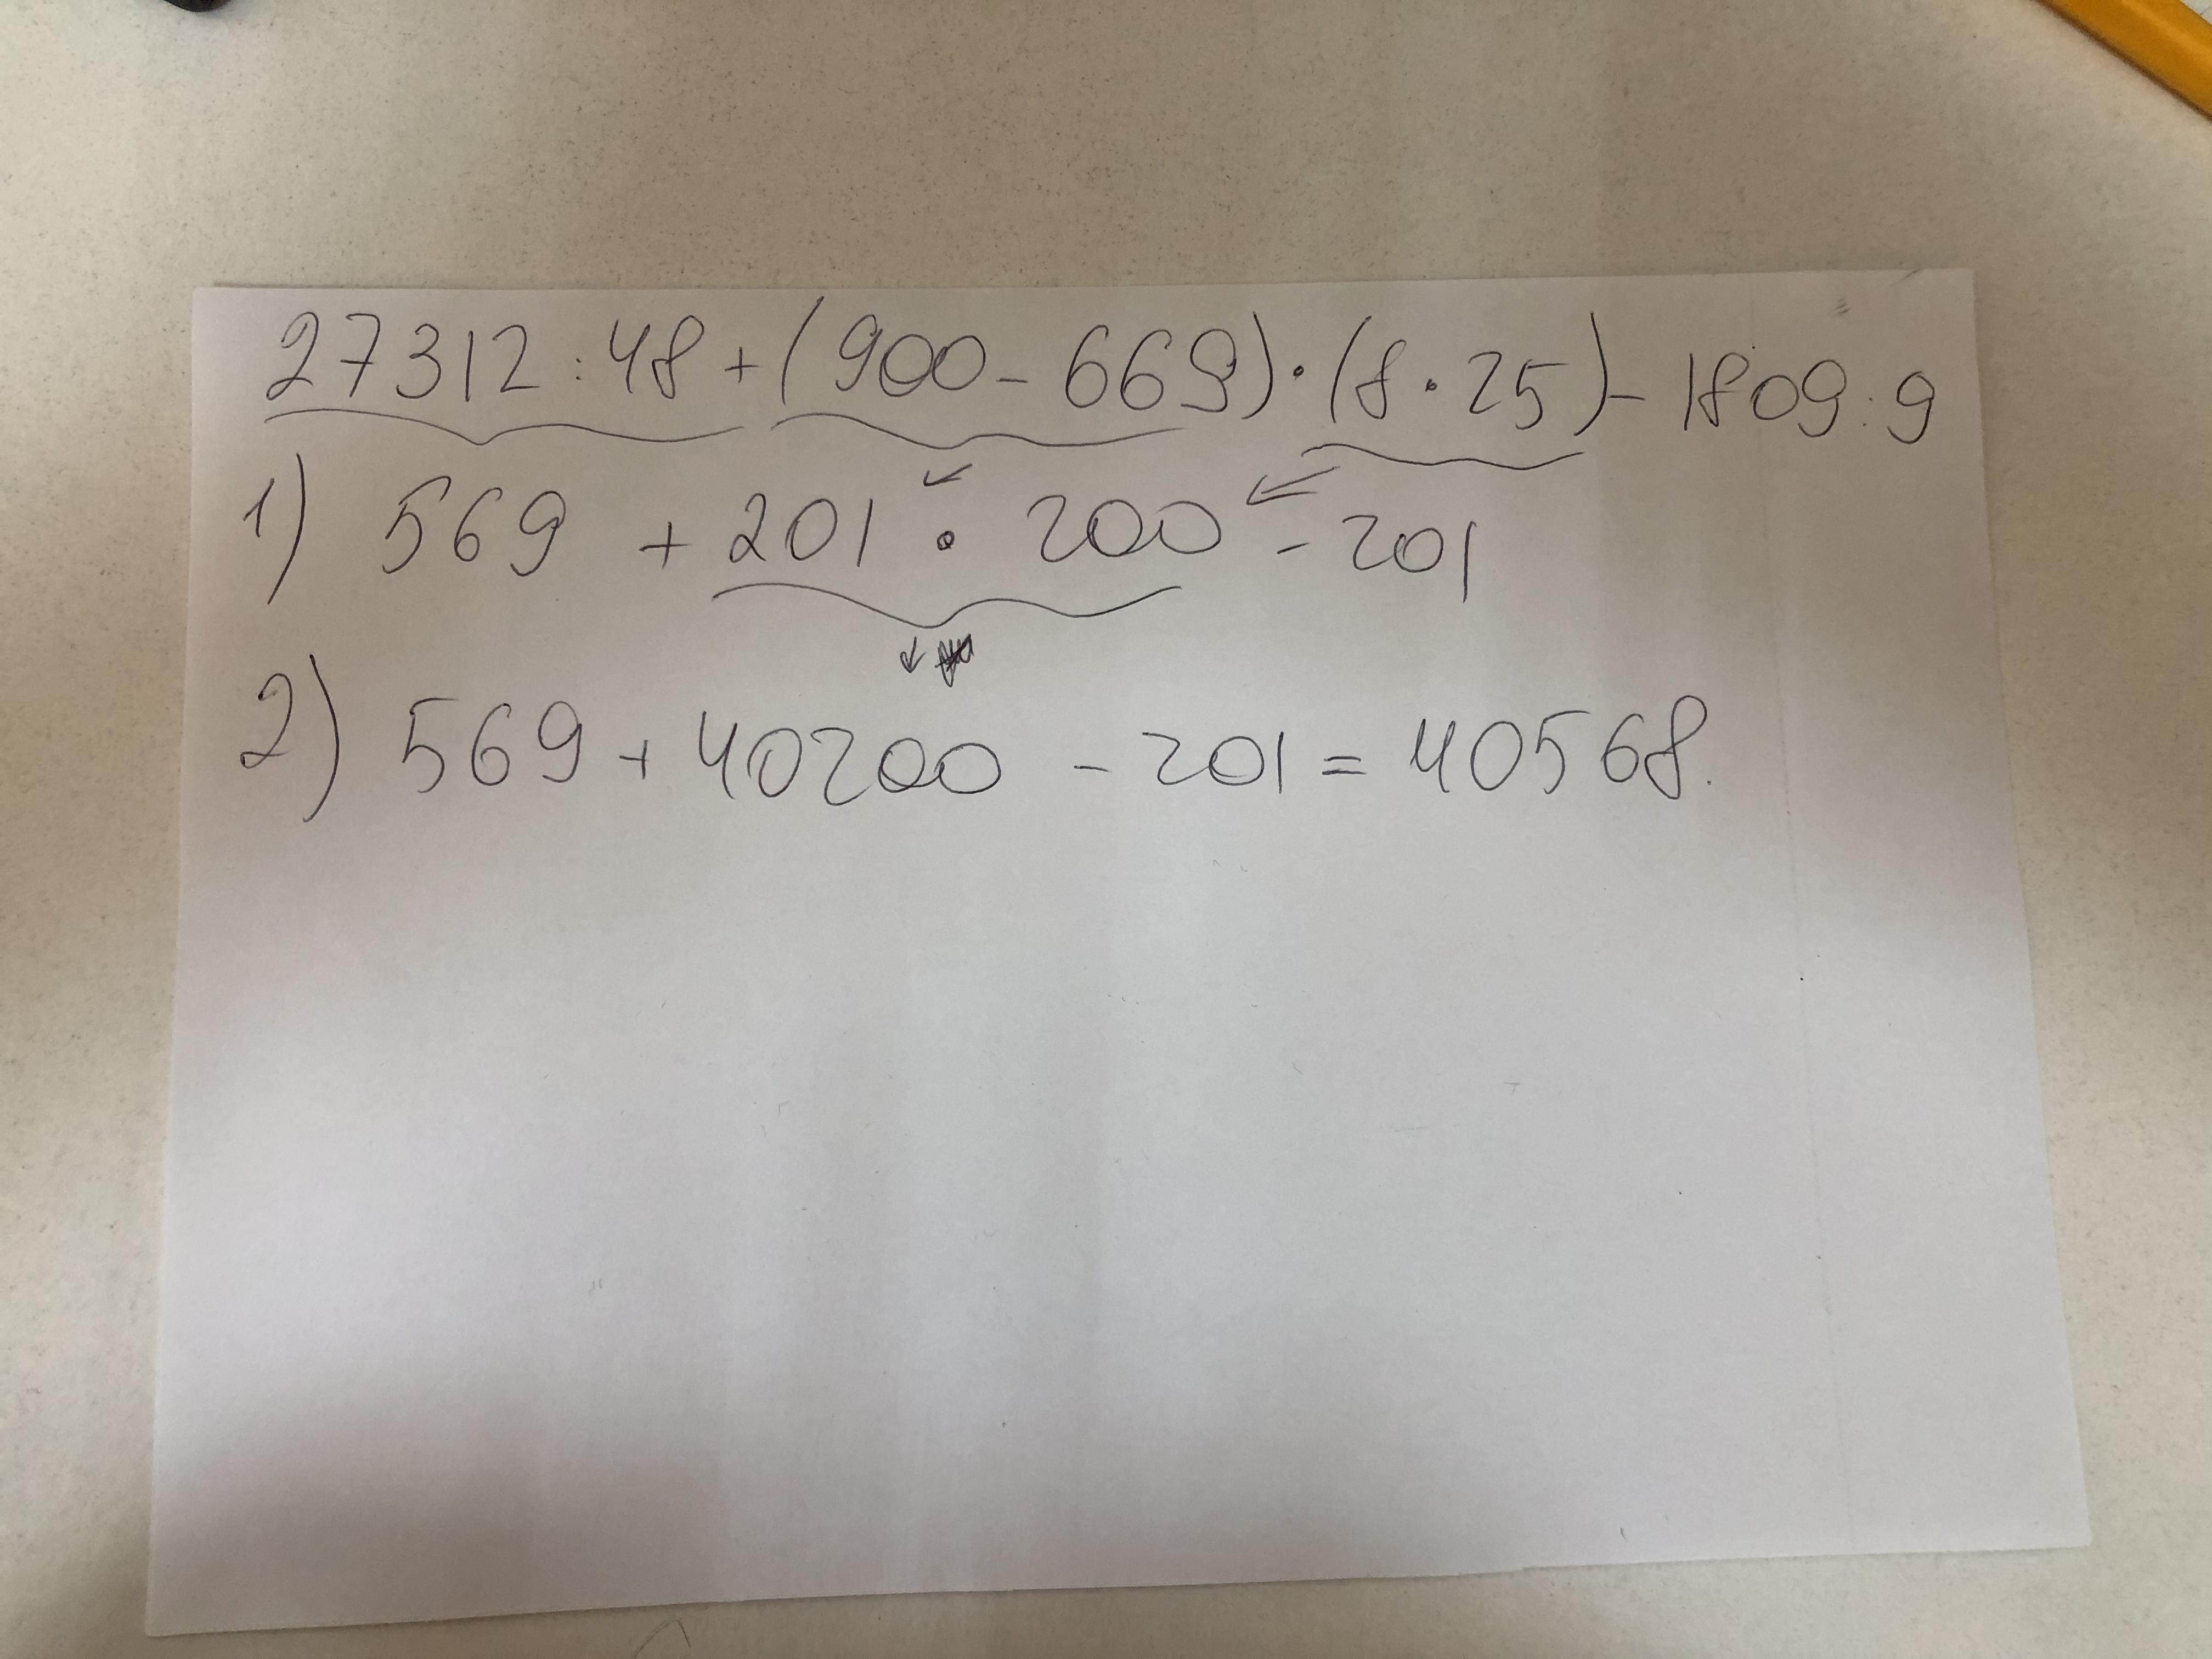 27312:48+(900-669)·(8·25)-1809:9
1) 569 + 201 · 200 - 201
2) 569 + 40200 - 201 = 40568.